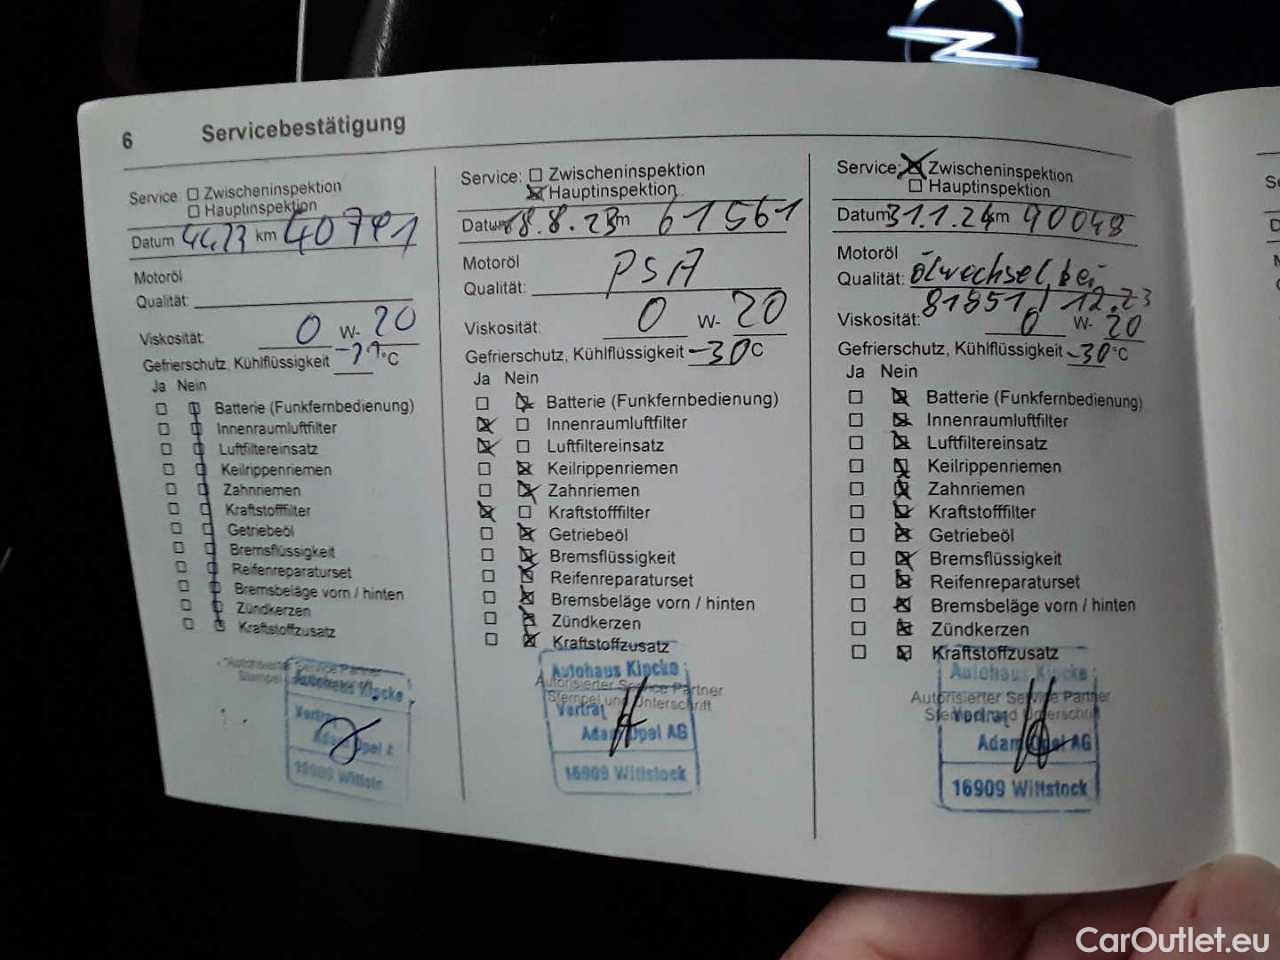 6 Servicebestätigung
Service: Zwischeninspektion
Hauptinspektion
Datum 4.4.23 km 40791
Motoröl
Qualität:
Viskosität: 0 W- 20
Gefrierschutz, Kühlflüssigkeit °C
Ja Nein
Batterie (Funkfernbedienung)
Innenraumluftfilter
Luftfiltereinsatz
Keilrippenriemen
Zahnriemen
Kraftstofffilter
Getriebeöl
Bremsflüssigkeit
Reifenreparaturset
Bremsbeläge vorn / hinten
Zündkerzen
Kraftstoffzusatz
Autorisierter Service Partner
Autohaus Kipcke
Vertrag
Adam Opel
16909 Wittstock
Service: Zwischeninspektion
Hauptinspektion
Datum 18.8.23 km 61561
Motoröl
Qualität: PSA
Viskosität: 0 W- 20
Gefrierschutz, Kühlflüssigkeit -30 °C
Ja Nein
Batterie (Funkfernbedienung)
Innenraumluftfilter
Luftfiltereinsatz
Keilrippenriemen
Zahnriemen
Kraftstofffilter
Getriebeöl
Bremsflüssigkeit
Reifenreparaturset
Bremsbeläge vorn / hinten
Zündkerzen
Kraftstoffzusatz
Autohaus Kipcke
Autorisierter Service Partner
Stempel und Unterschrift
Vertrag
Adam Opel AG
16909 Wittstock
Service: Zwischeninspektion
Hauptinspektion
Datum 31.1.24 km 90048
Motoröl
Qualität: Ölwechsel bei
81851 / 12.23
Viskosität: 0 W- 20
Gefrierschutz, Kühlflüssigkeit -30 °C
Ja Nein
Batterie (Funkfernbedienung)
Innenraumluftfilter
Luftfiltereinsatz
Keilrippenriemen
Zahnriemen
Kraftstofffilter
Getriebeöl
Bremsflüssigkeit
Reifenreparaturset
Bremsbeläge vorn / hinten
Zündkerzen
Kraftstoffzusatz
Autohaus Kipcke
Autorisierter Service Partner
Stempel und Unterschrift
Vertrag
Adam Opel AG
16909 Wittstock
CarOutlet.eu